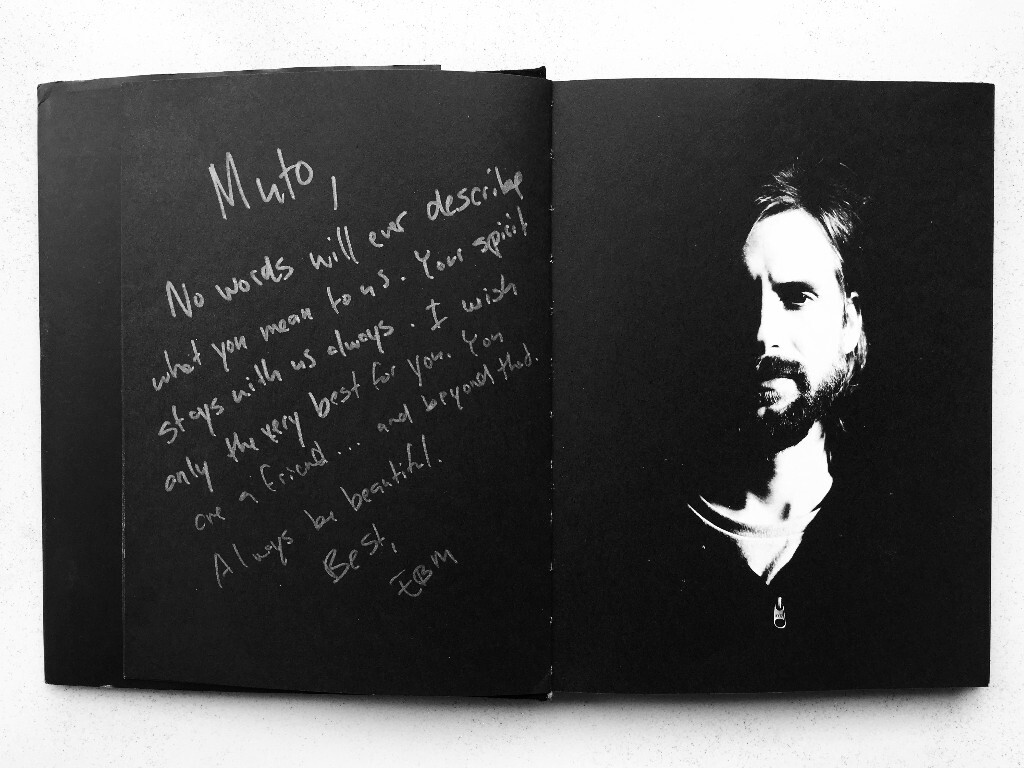 Muto,
No words will ever describe
what you mean to us. Your spirit
stays with us always. I wish
only the very best for you. You
are a friend... and beyond that.
Always be beautiful.
Best,
EBM